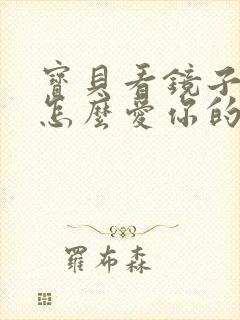 寶貝看鏡子
怎麼愛你的
羅布森